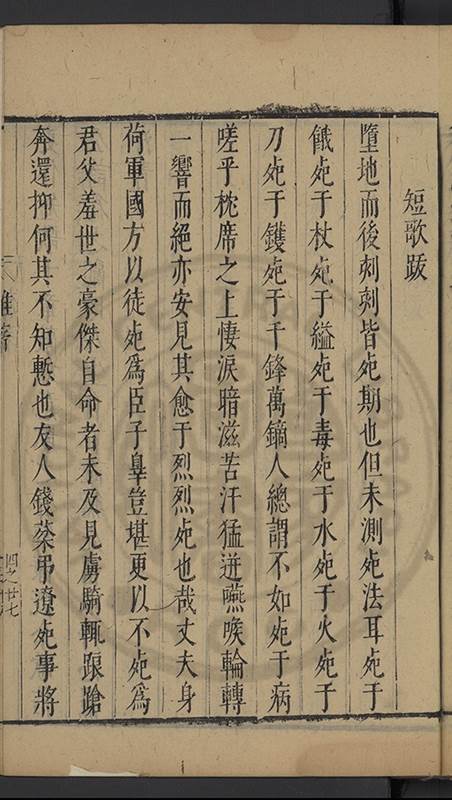 短歌跋
墮地而後刺刺皆𣦸期也但未測𣦸法耳𣦸于
餓𣦸于杖𣦸于縊𣦸于毒𣦸于水𣦸于火𣦸于
刀𣦸于鑊𣦸于千鋒萬鏑人總謂不如𣦸于病
嗟乎枕席之上悽淚暗滋苦汗猛迸嚥喉輪轉
一響而絕亦安見其愈于烈烈𣦸也哉丈夫身
荷軍國方以徒𣦸爲臣子辠豈堪更以不𣦸爲
君父羞世之豪傑自命者未及見虜騎輒踉蹌
奔還抑何其不知慙也友人錢蘂弔遼𣦸事將
雜著
四之廿七